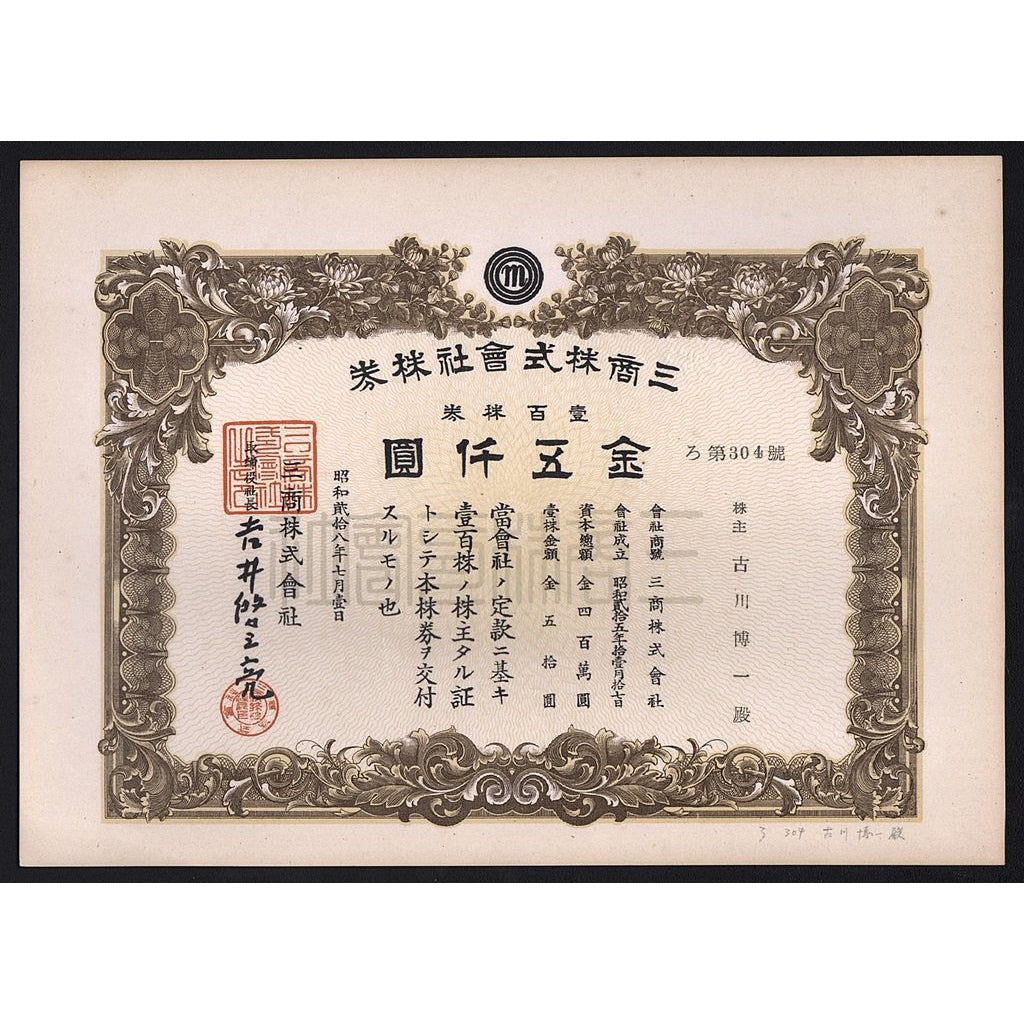 m
三商株式會社株券
壹百株券
金五仟圓
ろ第304號
株主 古川博一殿
會社商號 三商株式會社
會社成立 昭和貳拾五年拾壹月拾七日
資本總額 金四百萬圓
壹株金額 金五拾圓
當會社ノ定款ニ基キ
壹百株ノ株主タル証
トシテ本株券ヲ交付
スルモノ也
昭和貳拾八年七月壹日
三商株式會社
取締役社長 吉井
三商株式會社
ろ 304 古川博一殿